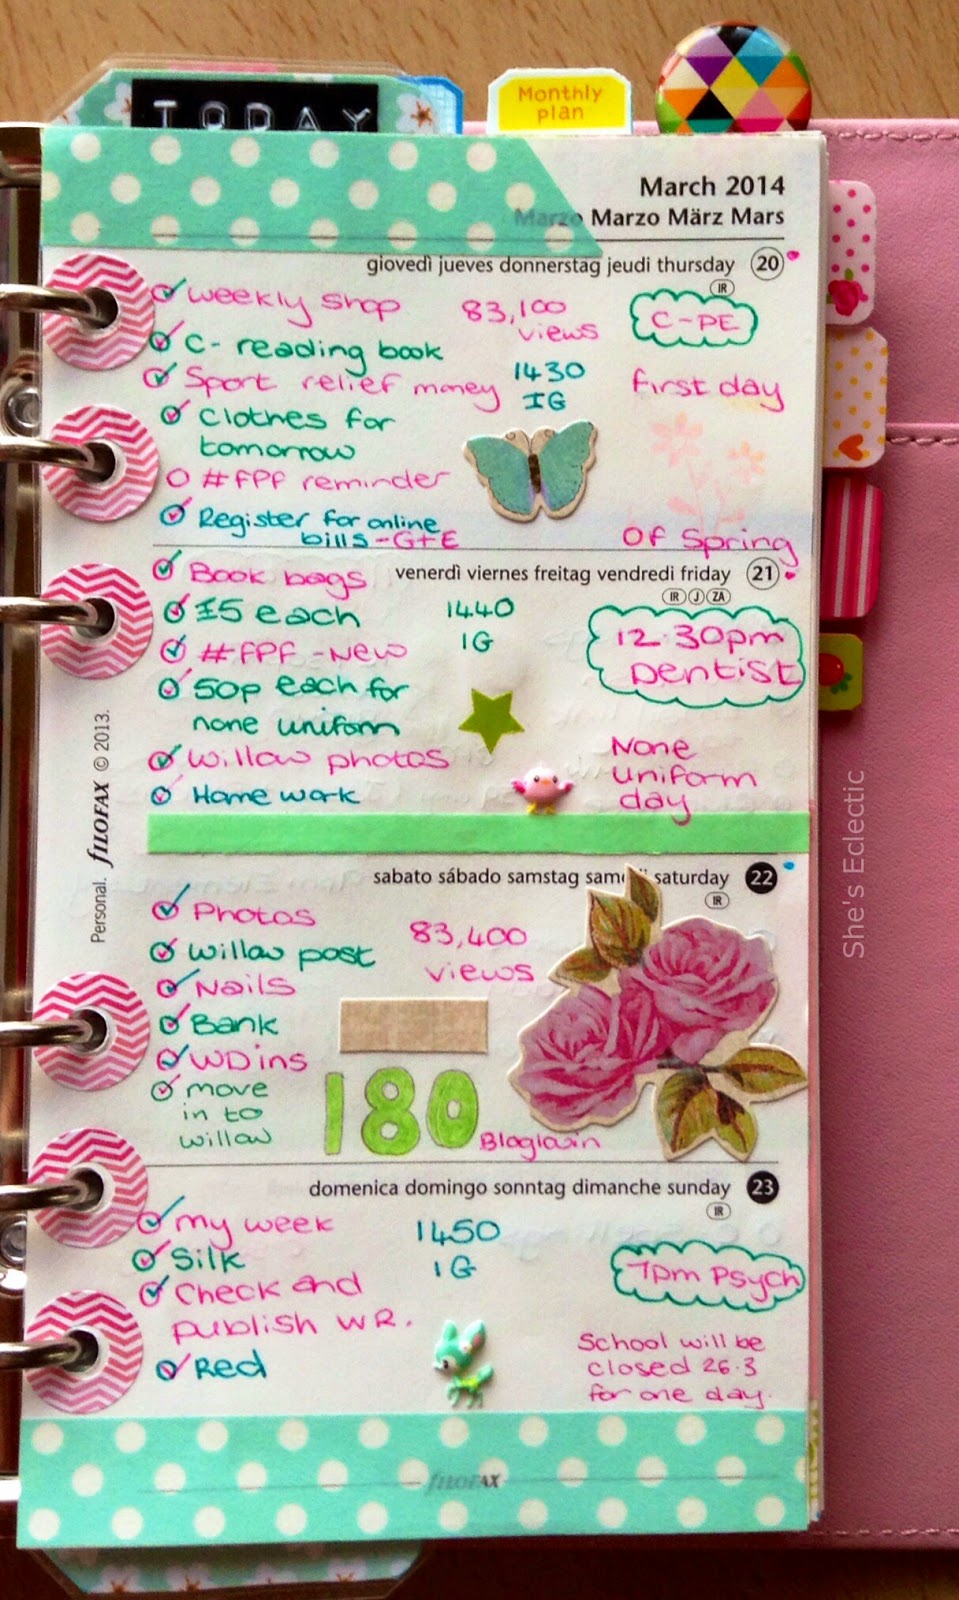 TODAY
Monthly
plan
March 2014
Marzo Marzo März Mars
giovedì jueves donnerstag jeudi thursday 20
IR
weekly shop
83,100
views
C-PE
C- reading book
Sport relief money
1430
IG
first day
Clothes for
tomorrow
#FPF reminder
Register for online
bills-G+E
Of Spring
Book bags
venerdì viernes freitag vendredi friday 21
IR J ZA
£5 each
1440
IG
12.30pm
Dentist
#FPF -New
50p each for
none uniform
Willow photos
None
uniform
day
Home work
Personal. fILOFAX © 2013.
She's Eclectic
sabato sábado samstag samedi saturday 22
IR
Photos
83,400
views
willow post
Nails
Bank
WD ins
move
in to
willow
180
Bloglovin
domenica domingo sonntag dimanche sunday 23
IR
my week
1450
IG
Silk
7pm Psych
Check and
publish WR.
Red
School will be
closed 26.3
for one day.
fILOFAX